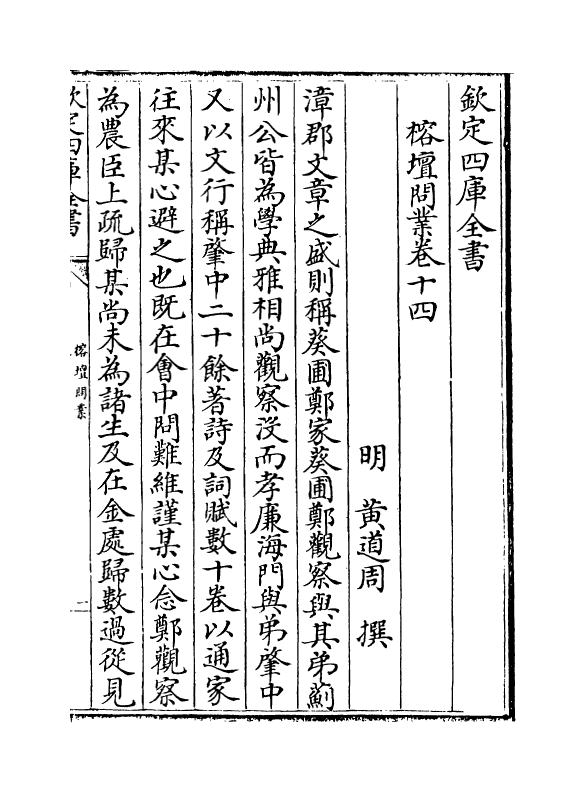 欽定四庫全書
榕壇問業卷十四
明 黃道周 撰
漳郡文章之盛則稱葵圃鄭家葵圃鄭觀察與其弟薊
州公皆為學典雅相尚觀察沒而孝廉海門與弟肇中
又以文行稱肇中二十餘著詩及詞賦數十卷以通家
往來某心避之也既在會中問難維謹某心念鄭觀察
為農臣上疏歸某尚未為諸生及在金處歸數過從見
欽定四庫全書
榕壇問業
一